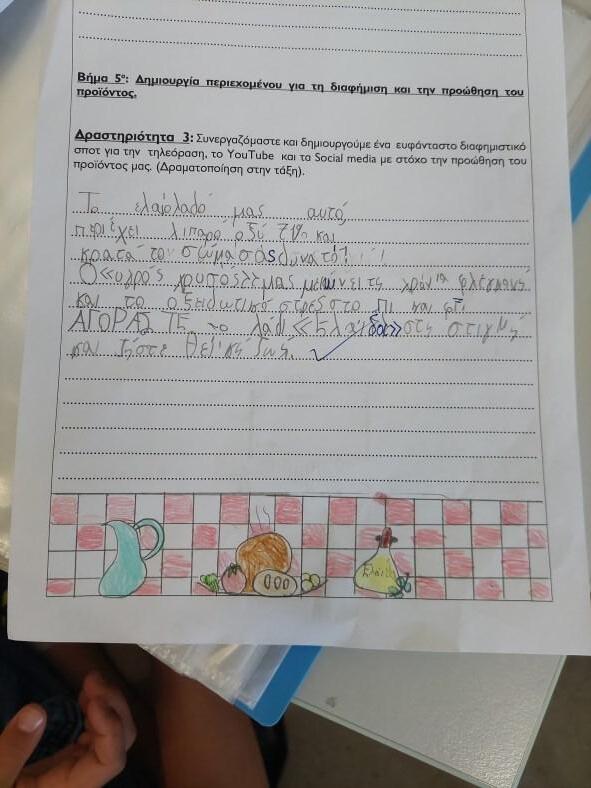 Βήμα 5ο: Δημιουργία περιεχομένου για τη διαφήμιση και την προώθηση του
προϊόντος.
Δραστηριότητα 3: Συνεργαζόμαστε και δημιουργούμε ένα ευφάνταστο διαφημιστικό
σποτ για την τηλεόραση, το YouTube και τα Social media με στόχο την προώθηση του
προϊόντος μας. (Δραματοποίηση στην τάξη).
Το ελαιόλαδό μας αυτό,
περιέχει λιπαρό οξύ και
κρατά το σώμα σας δυνατό!
Ο «υγρός χρυσός» μας μειώνει τη χρόνια φλεγμονή
και το οξειδωτικό στρες στο πι και φι
ΑΓΟΡΑΣΤΕ το λάδι «Ελαιδα» στη στιγμή
και ζήστε θεϊκή ζωή.